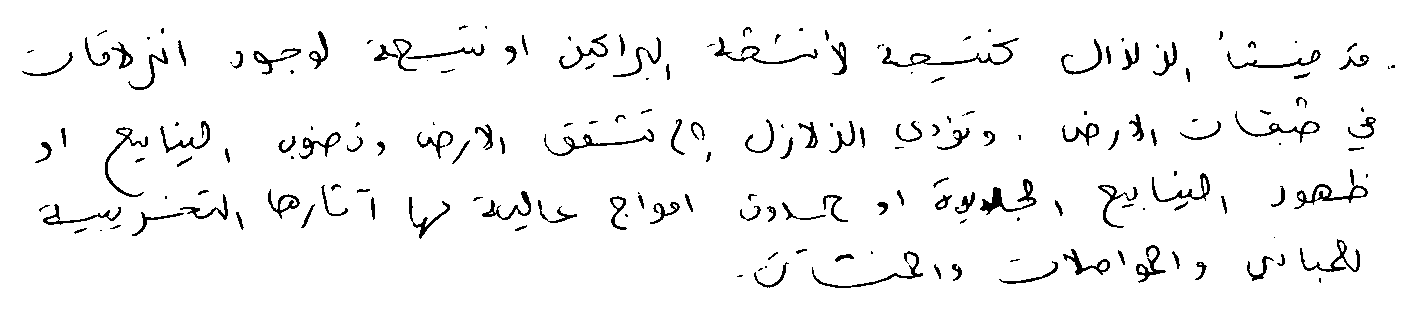 . قد ينشأ الزلازال كنتيجة لأنشطة البراكين او نتيجة لوجود انزلاقات
في طبقات الارض . وتؤدي الزلازل إلى تشقق الارض ونضوب الينابيع او
ظهور الينابيع الجديدة او حدوث امواج عالية لها آثارها التخريبية
للمباني والمواصلات والمنشآت .